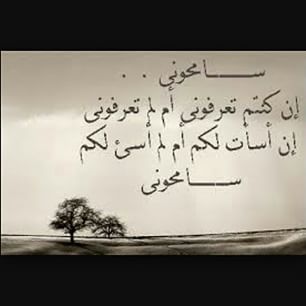 ســـــامحوني . .
إن كنتم تعرفوني أم لم تعرفوني
إن أسأت لكم أم لم أسئ لكم
ســـــامحوني